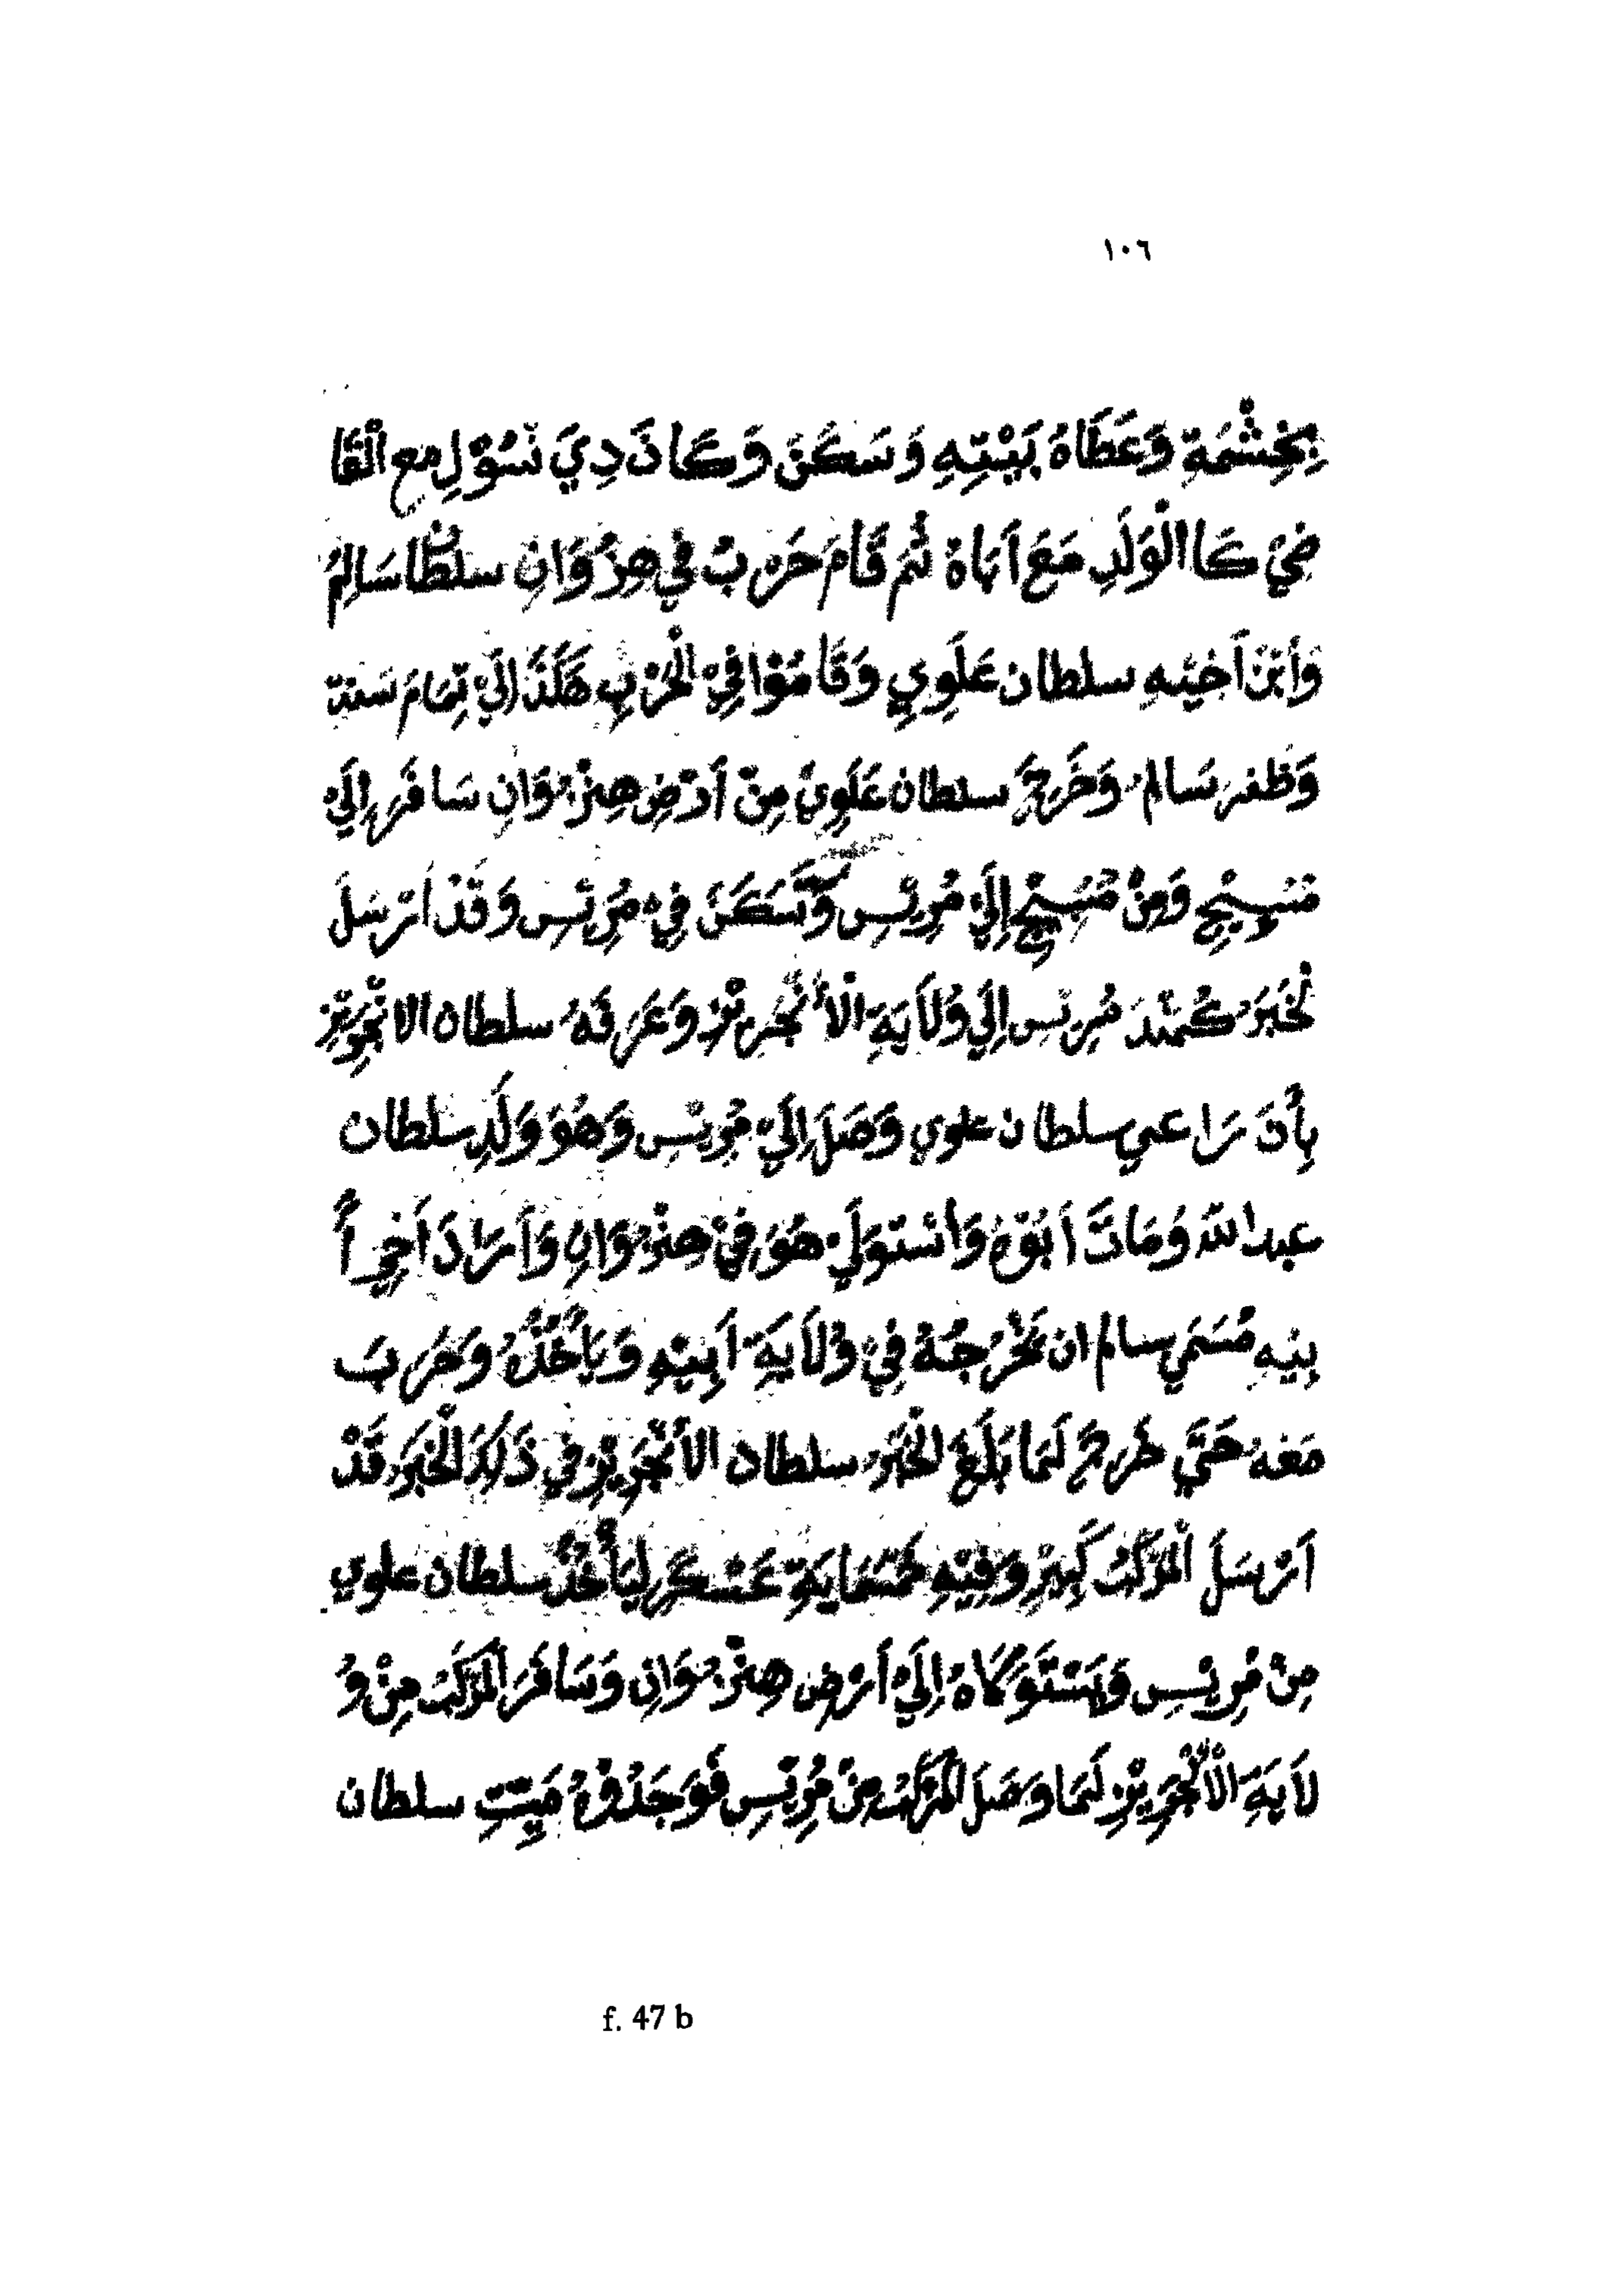 ١٠٦
بِخِشْمَةِ وَعَطَاهُ بَيْتِهِ وَسَكَنَ وَكَانَ دِيَ نَسُوْلِ مع الْقَا
ضِيْ كَا الْوَلَدِ مَعَ اَبَاهُ ثُمَّ قَامَ حَرْبُ فِيْ هِزُوَانِ سلطانُ سَالِمُ
وَاَبْنُ اَخِيْهِ سلطان عَلَوِي وَقَامُوْا فِيْ الْحَرْبِ هَكَذَا اِلَيْ تِمَامَ سَنَة
وَظفر سَالم وَخَرَجَ سلطان عَلَوِيْ مِنْ اَرْضِ هِنْزُوَانِ سَافَرَ اِلَيْ
مُسِبِيْجِ وَمِنْ مُسِبِيْجِ اِلَيْ مُرِيْسِ وَسَكَنَ فِيْ مُرِيْسِ وَقَدْ اَرْسَلَ
لخَبَرَ كُمَنْدَ مُرِيْسِ اِلَي وُلَايَةِ الْاَنْجِرِيْزِ وَعَرَفَهُ سلطان الانْجِرِيْزِ
بِأَنَّ رَاعي سلطان علوي وَصَلَ اِلَيْ مُرِيْسِ وَهُوَ وَلَدِ سلطان
عبد الله وُمَاتَ اَبُوْهُ وَاسْتَوَلَيْ هُوَ فِيْ هِنْزُوَانِ وَاَرَادَ اَخِيْ اَ
بِيْهِ مُسَمَي سالم ان يَخْرُجُهُ فِيْ وُلَايَةِ اَبِيْهِ وَيَاْخُذُ وَحَرَبَ
مَعَهُ حَتَّي خَرَجَ لَمَا بَلَغَ الْخَبَرُ سلطان الاَنْجِرِيْزِ فِي ذَلِكَ الْخَبَرُ قَدْ
اَرْسَلَ الْمَرْكَبُ كَبِيْرِ وَفِيْهِ خَمْسَمَايَةِ عَسْكَرِ لِيَاْخُذُ سلطان علوي
مِنْ مُرِيْسِ وَيَسْتَوَكَاهُ اِلَيْ اَرْضِ هِنْزُوَانِ وَسَافَرَ الْمَرْكَبُ مِنْ وُ
لَايَةِ الْاَنْجِرِيْزِ لَمَا وَصَلَ الْمَرْكَبُ مِنْ مُرِيْسِ فَوَجَدُوْهُ مَيِّتِ سلطان
f. 47 b